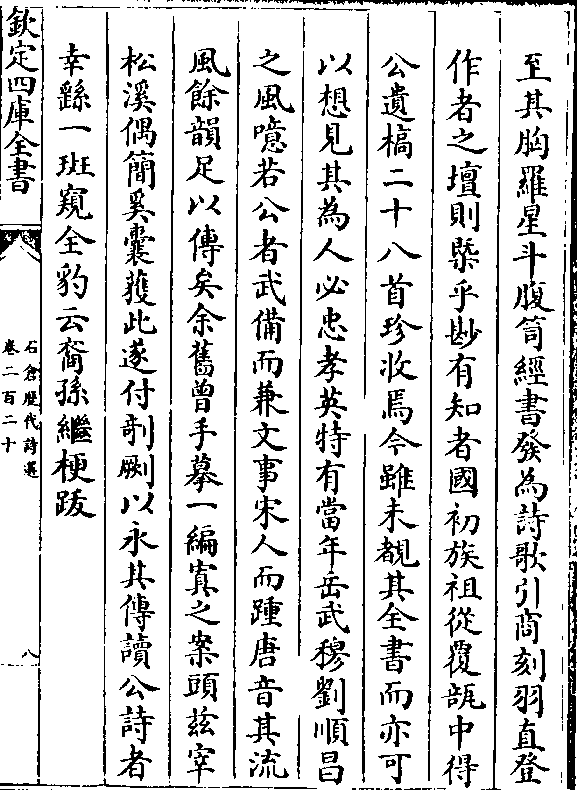 至其胸羅星斗腹笥經書發為詩歌引商刻羽直登
作者之壇則槩乎尠有知者國初族祖從覆瓿中得
公遺槁二十八首珍收焉今雖未覩其全書而亦可
以想見其為人必忠孝英特有當年岳武穆劉順昌
之風噫若公者武備而兼文事宋人而踵唐音其流
風餘韻足以傳矣余舊曾手摹一編寘之案頭兹宰
松溪偶簡奚囊獲此遂付剞劂以永其傳讀公詩者
幸繇一斑窺全豹云裔孫繼梗跋
欽定四庫全書
石倉歴代詩選
卷二百二十
八